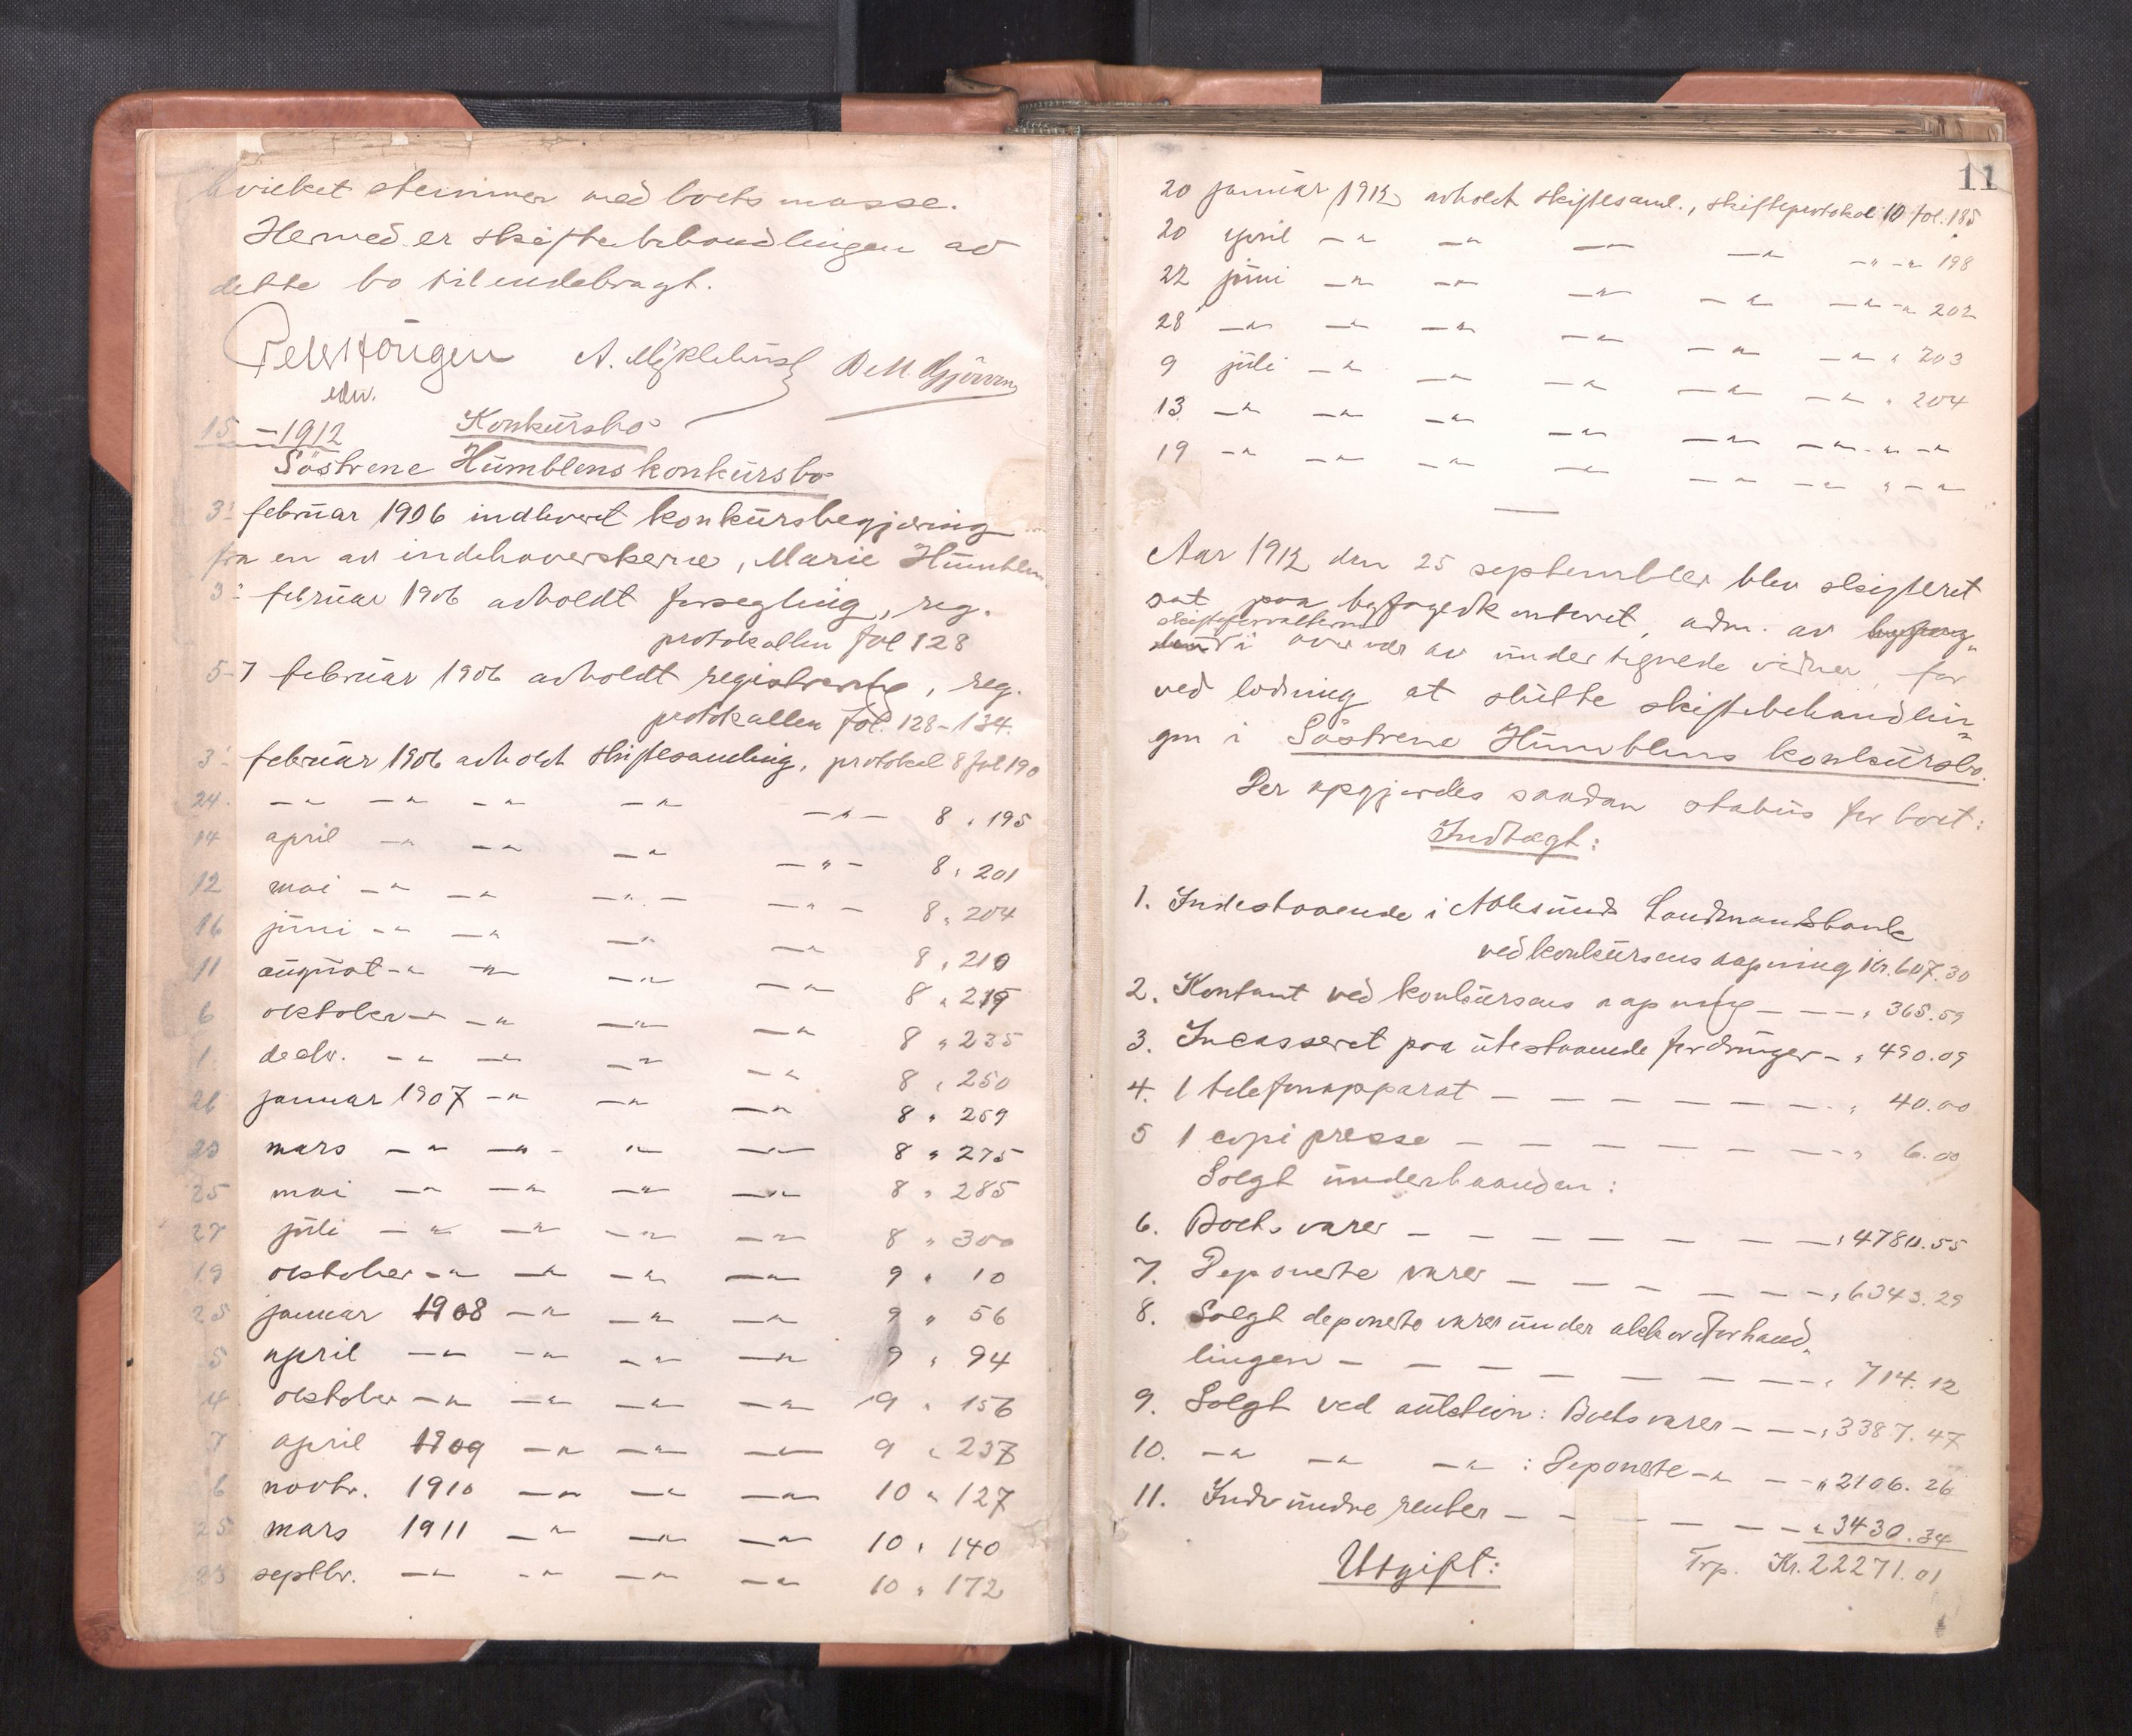 hvilket stemmer med boets masse.
Hermed er skiftebehandlingen av
dette bo tilendebragt.
A. Myklebust
edv.
15 — 1912 Konkursbo
Söstrene Humblens konkursbo
3' februar 1906 indleveret konkursbegjæring
fra en av indehaverskerne, Marie Humblen
3' februar 1906 avholdt forsegling, reg.
protokollen fol 128
5-7 februar 1906 avholdt registrering, reg.
protokollen fol. 128-134.
3' februar 1906 avholdt skiftesamling, protokol 8 fol 190
24. —"— —"— —"— —"— —"— 8 " 195
14 april —"— —"— —"— —"— 8 " 201
12 mai —"— —"— —"— —"— 8 " 204
16 juni —"— —"— —"— —"— 8 " 210
11 august —"— —"— —"— —"— 8 " 219
6 oktober —"— —"— —"— —"— 8 " 235
1 decbr. —"— —"— —"— —"— 8 " 250
26 januar 1907 —"— —"— —"— 8 " 259
23 mars —"— —"— —"— —"— 8 " 275
25 mai —"— —"— —"— —"— 8 " 285
27 juli —"— —"— —"— —"— 8 " 300
19 oktober —"— —"— —"— —"— 9 " 10
25 januar 1908 —"— —"— —"— 9 " 56
5 april —"— —"— —"— —"— 9 " 94
4 oktober —"— —"— —"— —"— 9 " 156
7 april 1909 —"— —"— —"— 9 " 237
6 novbr. 1910 —"— —"— —"— 10 " 127
25 mars 1911 —"— —"— —"— 10 " 140
23 septbr. —"— —"— —"— —"— 10 " 172
11
20 januar 1912 avholdt skiftesaml., skifteprotokol 10 fol. 185
20 april —"— —"— —"— —"— —"—"— 198
22 juni —"— —"— —"— —"— —"—"— 202
28 —"— —"— —"— —"— —"— —"— " 203
9 juli —"— —"— —"— —"— —"— " 204
13 —"— —"— —"— —"— —"— —"— " —"—
19 —"— —"— —"— —"— —"— —"— " —"—
Aar 1912 den 25 september blev skifteret
sat paa byfogedkontoret, adm. av byfog-
skifteforvalteren
den i overvær av undertegnede vidner, for
ved lodning at slutte skiftebehandlin-
gen i Söstrene Humblens konkursbo.
Der opgjordes saadan status for boet:
Indtægt:
1. Indestaaende i Aalesunds Landmandsbank
ved konkursens aapning Kr. 607.30
2. Kontant ved konkursens aapning — — — " 365.59
3. Incasseret paa utestaaende fordringer — " 490.09
4. 1 telefonapparat — — — — — — — " 40.00
5 1 copipresse — — — — — — — " 6.00
Solgt underhaanden:
6. Boets varer — — — — — — — " 4780.55
7. Deponerte varer — — — — — — " 6343.29
8. Solgt deponerte varer under akkordforhand-
lingen — — — — — — — — " 714.12
9. Solgt ved auktion: Boets varer — — — " 3387.47
10. —"— —"— —"— : Deponerte —"— — — " 2106.26
11. Indvundne renter — — — — — — " 3430.34
Trp. Kr. 22271.01
Utgift: